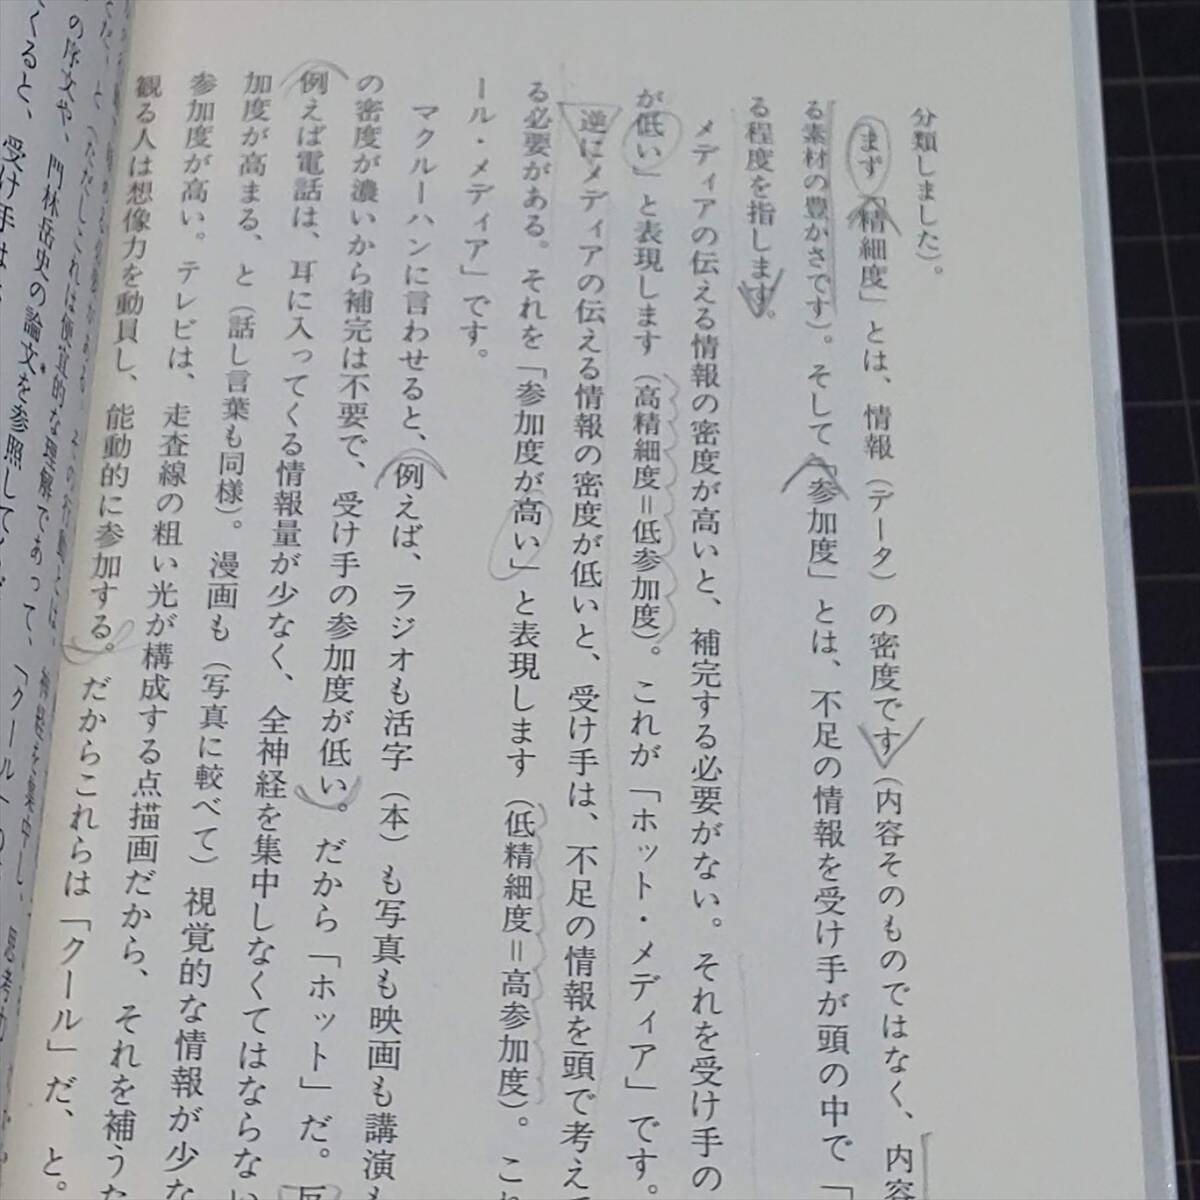 分類しました）。
まず「精細度」とは、情報（データ）の密度です（内容そのものではなく、内容
る素材の豊かさです）。そして「参加度」とは、不足の情報を受け手が頭の中で「
る程度を指します。
メディアの伝える情報の密度が高いと、補完する必要がない。それを受け手の
が低い」と表現します（高精細度＝低参加度）。これが「ホット・メディア」です。
逆にメディアの伝える情報の密度が低いと、受け手は、不足の情報を頭で考えて
る必要がある。それを「参加度が高い」と表現します（低精細度＝高参加度）。これ
ール・メディア」です。
マクルーハンに言わせると、例えば、ラジオも活字（本）も写真も映画も講演も
の密度が濃いから補完は不要で、受け手の参加度が低い。だから「ホット」だ。反
例えば電話は、耳に入ってくる情報量が少なく、全神経を集中しなくてはならない
加度が高まる、と（話し言葉も同様）。漫画も（写真に較べて）視覚的な情報が少な
参加度が高い。テレビは、走査線の粗い光が構成する点描画だから、それを補うた
観る人は想像力を動員し、能動的に参加する。だからこれらは「クール」だ、と。
（ただしこれは便宜的な理解であって、「クール
の序文や、門林岳史の論文を参照して
くると、受け手は